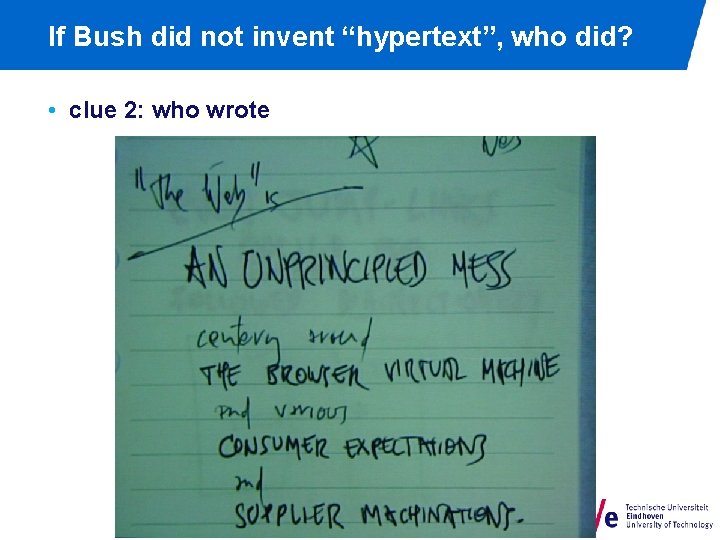 If Bush did not invent “hypertext”, who did?
• clue 2: who wrote
"The Web" is
AN UNPRINCIPLED MESS
around
THE BROWSER VIRTUAL MACHINE
and various
CONSUMER EXPECTATIONS
and
SUPPLIER MACHINATIONS.
/e
Technische Universiteit
Eindhoven
University of Technology